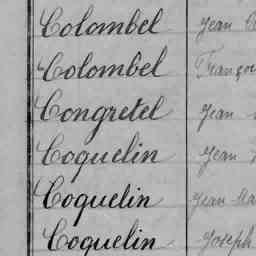 Colombel Jean
Colombel
Congretel Jean
Coquelin Jean
Coquelin Jean
Coquelin Joseph